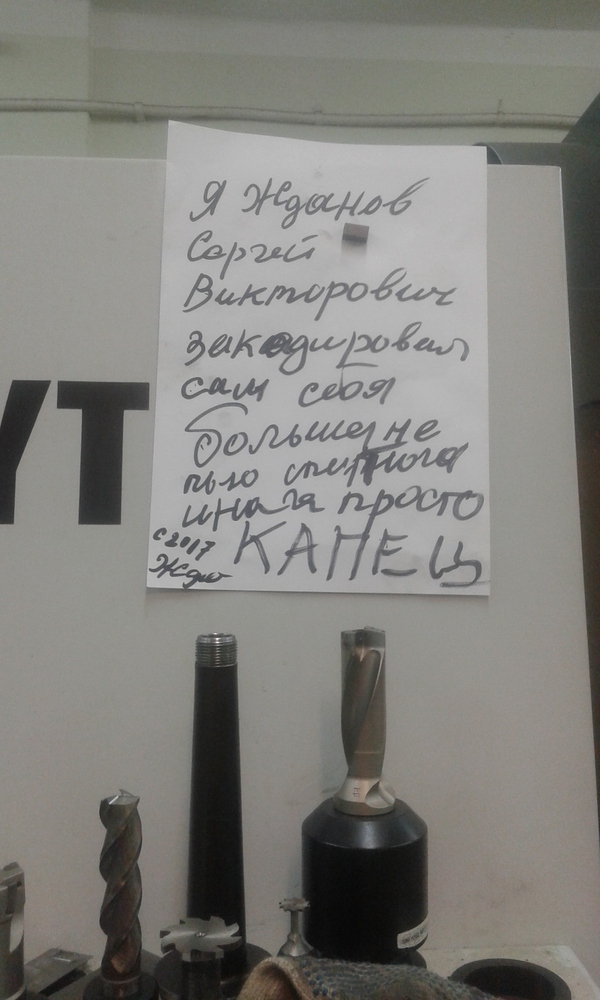 Я Жданов
Сергей
Викторович
закадировал
сам себя
больше не
пью спиртнога
иначя просто
КАПЕЦ
с 2017
YT